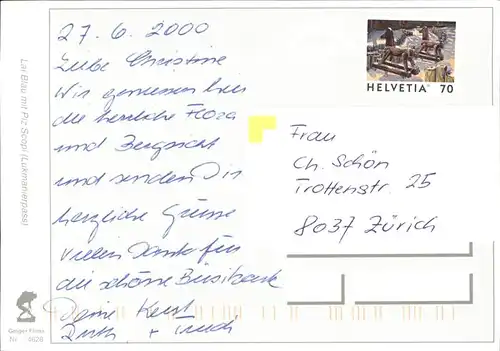 27. 6. 2000
Liebe Christine
Wir geniessen hier
die herrliche Flora
und Bergsicht
und senden Dir
herzliche Grüsse
vielen Dank für
die schöne
Deine
Ruth + Trudi
HELVETIA 70
Frau
Ch. Schön
Trottenstr. 25
8037 Zürich
Lai Blau mit Piz Scopi (Lukmanierpass)
Geiger Flims
Nr. 4628